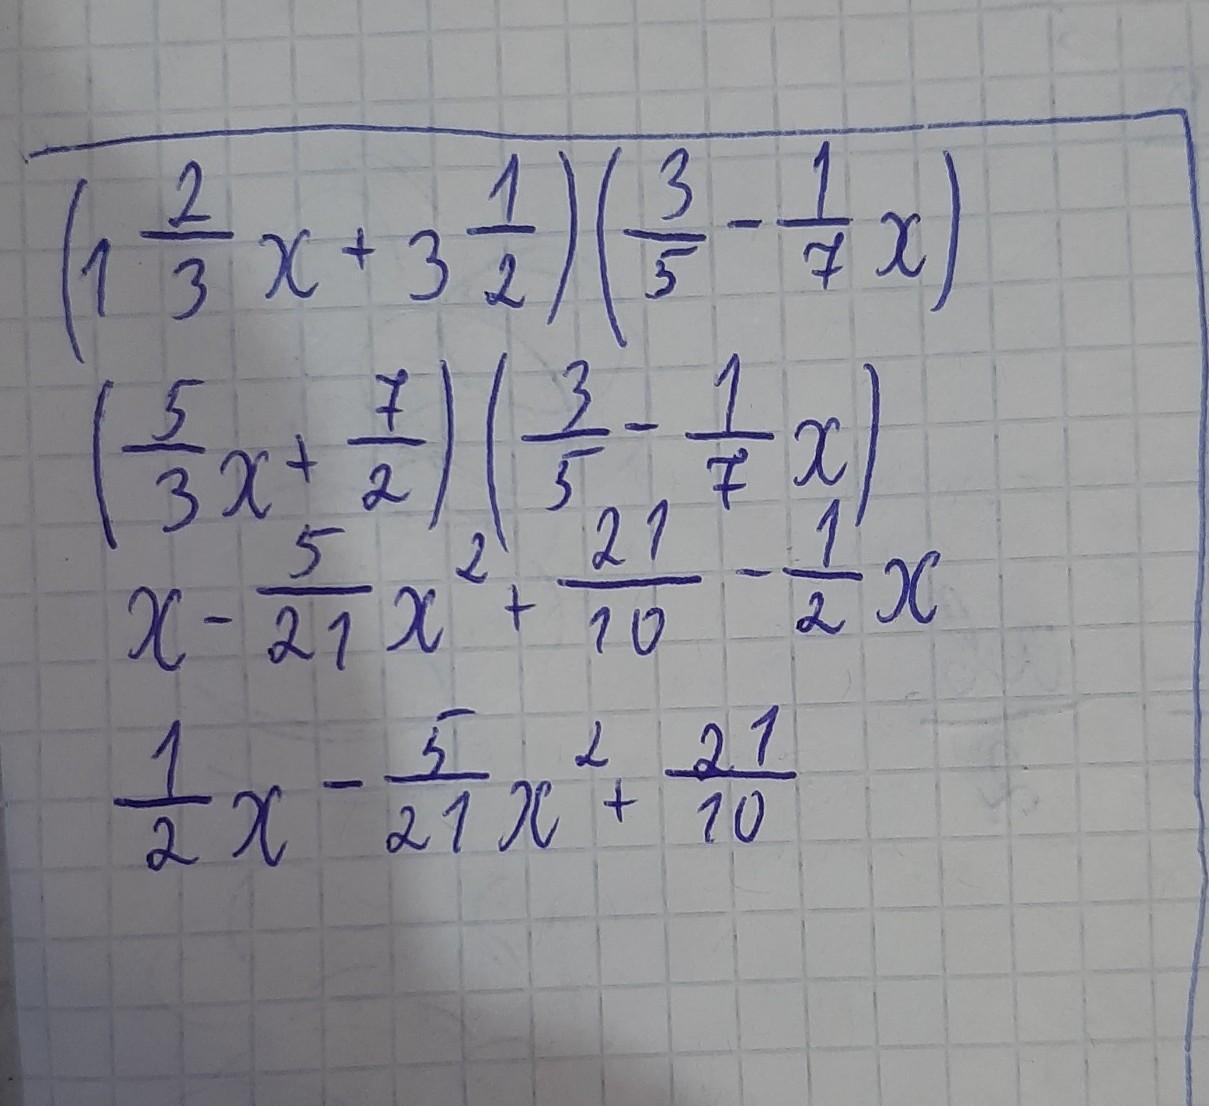 (1 2/3 x + 3 1/2)(3/5 - 1/7 x)
(5/3 x + 7/2)(3/5 - 1/7 x)
x - 5/21 x² + 21/10 - 1/2 x
1/2 x - 5/21 x² + 21/10